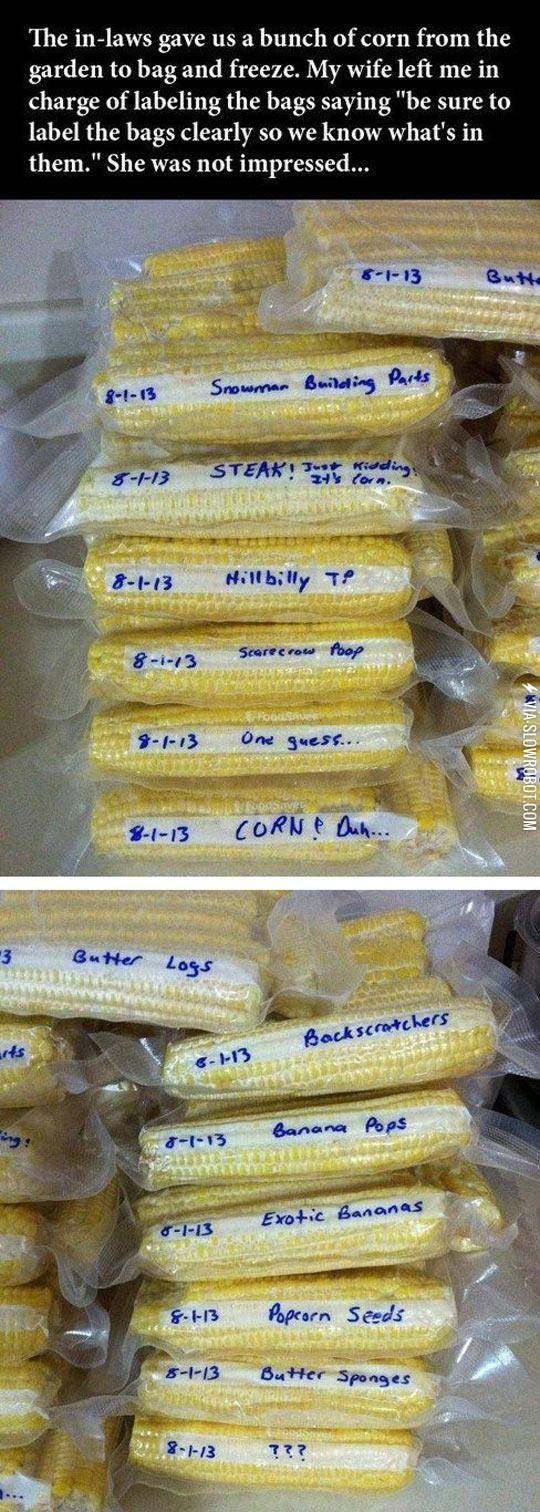 The in-laws gave us a bunch of corn from the
garden to bag and freeze. My wife left me in
charge of labeling the bags saying "be sure to
label the bags clearly so we know what's in
them." She was not impressed...
8-1-13 Butte
8-1-13 Snowman Building Parts
8-1-13 STEAK! Just Kidding!
It's Corn.
8-1-13 Hillbilly TP
8-1-13 Scarecrow Poop
FoodSaver
8-1-13 One guess...
FoodSaver
8-1-13 CORN! Duh...
VIA SLOWROBOT.COM
3 Butter Logs
8-1-13 Backscratchers
rts
8-1-13 Banana Pops
ing!
8-1-13 Exotic Bananas
8-1-13 Popcorn Seeds
8-1-13 Butter Sponges
8-1-13 ???
...